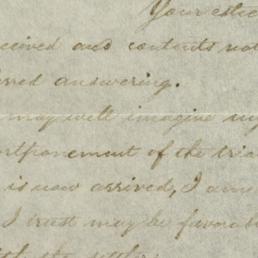 Your
ceived and contents not
erred answering.
may well imagine my
ostponement of the tria
is now arrived, I am
I trust may be favorab